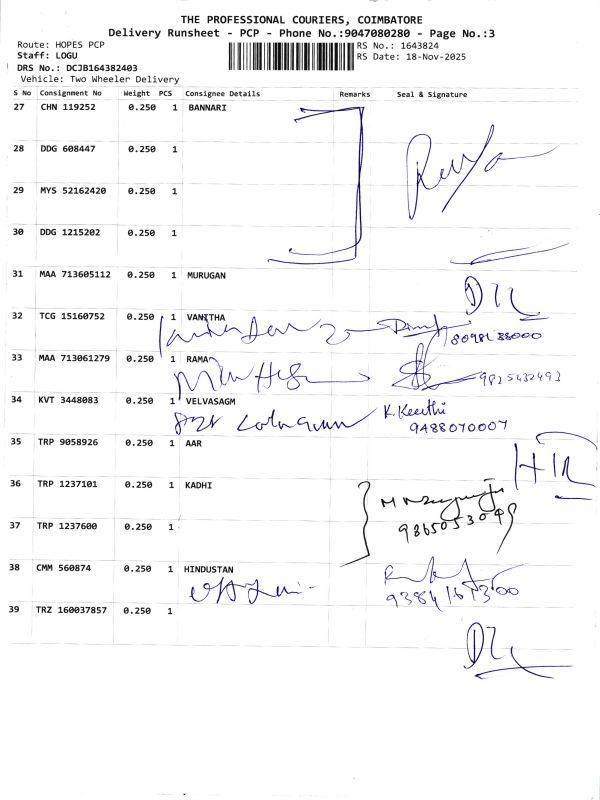 THE PROFESSIONAL COURIERS, COIMBATORE
Delivery Runsheet - PCP - Phone No.:9047080280 - Page No.:3
Route: HOPES PCP
RS No.: 1643824
Staff: LOGU
RS Date: 18-Nov-2025
DRS No.: DCJB164382403
Vehicle: Two Wheeler Delivery
S No Consignment No Weight PCS Consignee Details Remarks Seal & Signature
27 CHN 119252 0.250 1 BANNARI
28 DDG 608447 0.250 1
29 MYS 52162420 0.250 1
30 DDG 1215202 0.250 1
31 MAA 713605112 0.250 1 MURUGAN
32 TCG 15160752 0.250 1 VANITHA
33 MAA 713061279 0.250 1 RAMA
9825432493
34 KVT 3448083 0.250 1 VELVASAGM
K. Keerthi
9488070007
35 TRP 9058926 0.250 1 AAR
36 TRP 1237101 0.250 1 KADHI
37 TRP 1237600 0.250 1
38 CMM 560874 0.250 1 HINDUSTAN
39 TRZ 160037857 0.250 1